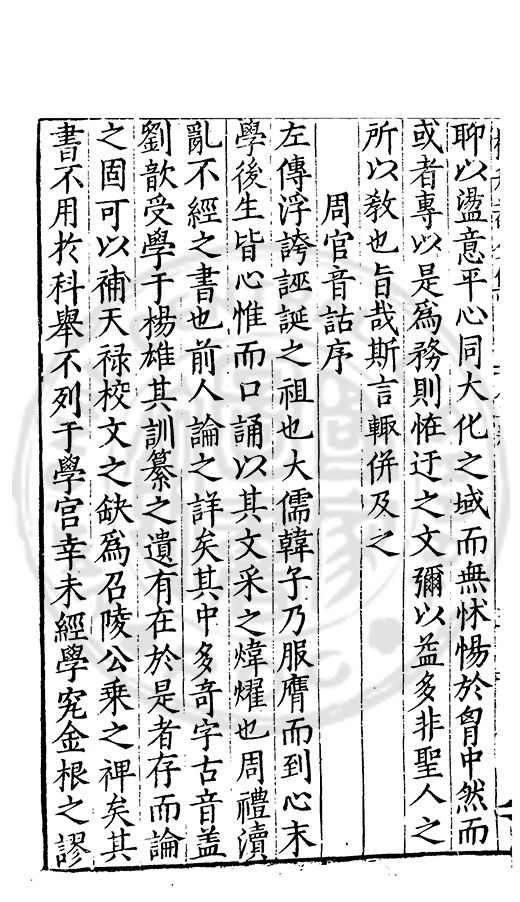 聊以盪意平心同大化之域而無怵惕於胷中然而
或者專以是爲務則恠迂之文彌以益多非聖人之
所以敎也旨哉斯言輙併及之
周官音詁序
左傳浮誇誣誕之祖也大儒韓子乃服膺而到心末
學後生皆心惟而口誦以其文采之煒燿也周禮瀆
亂不經之書也前人論之詳矣其中多奇字古音盖
劉歆受學于楊雄其訓纂之遺有在於是者存而論
之固可以補天祿校文之缺爲召陵公乘之裨矣其
書不用於科舉不列于學官幸未經學究金根之謬